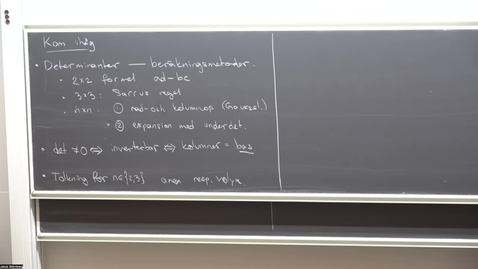 Kom ihåg
• Determinanter — beräkningsmetoder.
• 2x2 formel ad-bc
• 3x3: Sarrus regel
• nxn: ① rad-och kolumnop. (Gausel.)
② expansion med underdet.
• det ≠0 ⇔ inverterbar ⇔ kolumner = bas
• Tolkning för n∈{2,3} area resp. volym.